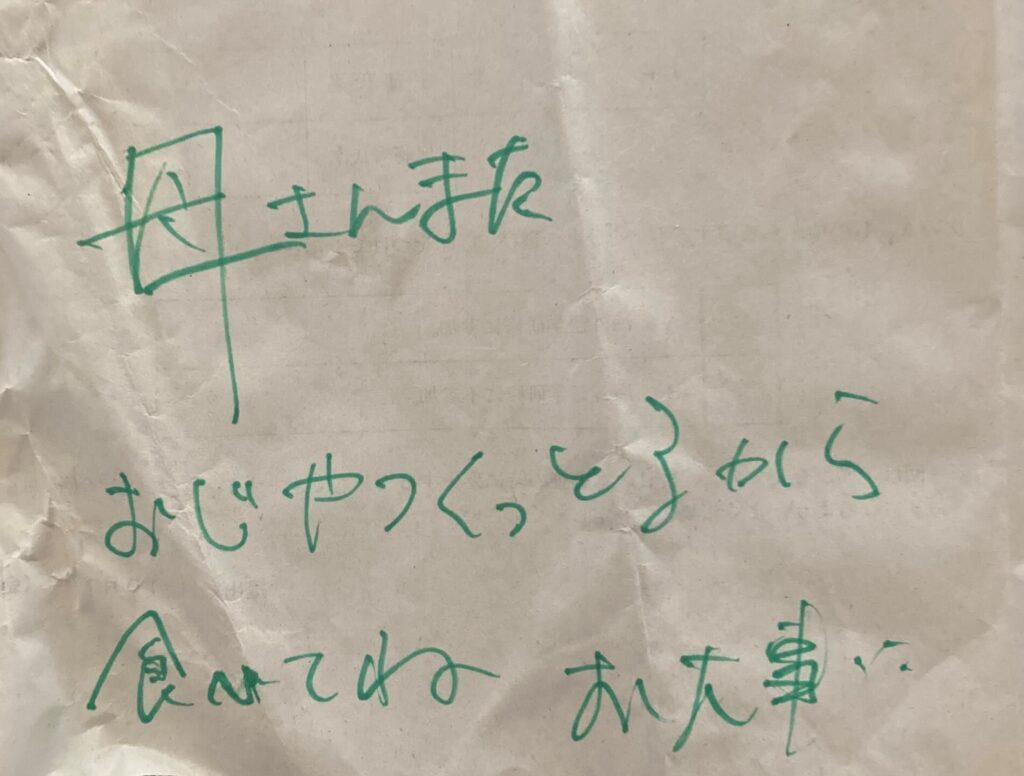 母さんまた
おじやつくっとるから
食べてね お大事に